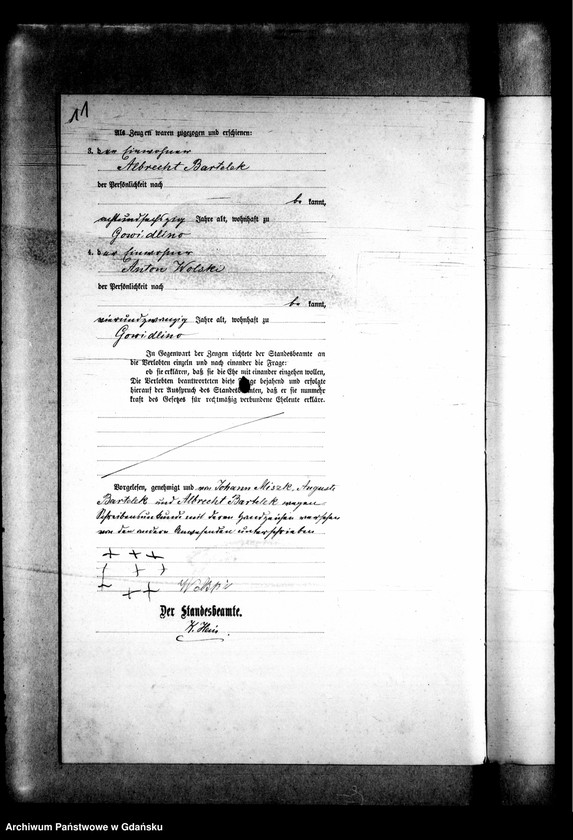 11
Als Zeugen waren zugezogen und erschienen:
3. der Einwohner
Albrecht Bartelek
der Persönlichkeit nach
be kannt,
achtundsechszig Jahre alt, wohnhaft zu
Gowidlino
4. der Einwohner
Anton Wolski
der Persönlichkeit nach
be kannt,
vierundzwanzig Jahre alt, wohnhaft zu
Gowidlino
In Gegenwart der Zeugen richtete der Standesbeamte an
die Verlobten einzeln und nach einander die Frage:
ob sie erklären, daß sie die Ehe mit einander eingehen wollen.
Die Verlobten beantworteten diese Frage bejahend und erfolgte
hierauf der Ausspruch des Standesbeamten, daß er sie nunmehr
kraft des Gesetzes für rechtmäßig verbundene Eheleute erkläre.
Vorgelesen, genehmigt und von Johann Miszk, Auguste
Bartelek und Albrecht Bartelek wegen
Schreibensunkunde mit deren Handzeichen versehen
von den andern Anwesenden unterschrieben
+ + +
+
+ +
Wolski
Der Standesbeamte.
Archiwum Państwowe w Gdańsku